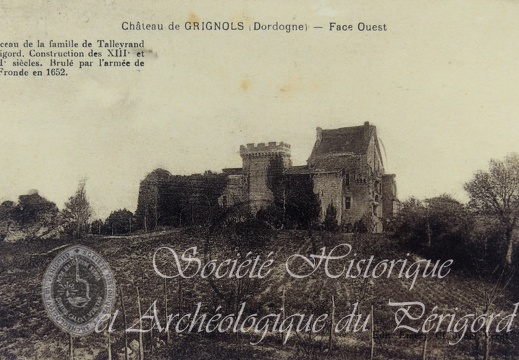 Château de GRIGNOLS (Dordogne) — Face Ouest
ceau de la famille de Talleyrand
igord. Construction des XIIIᵉ et
Iᵉ siècles. Brulé par l'armée de
Fronde en 1652.
Société Historique
et Archéologique du Périgord